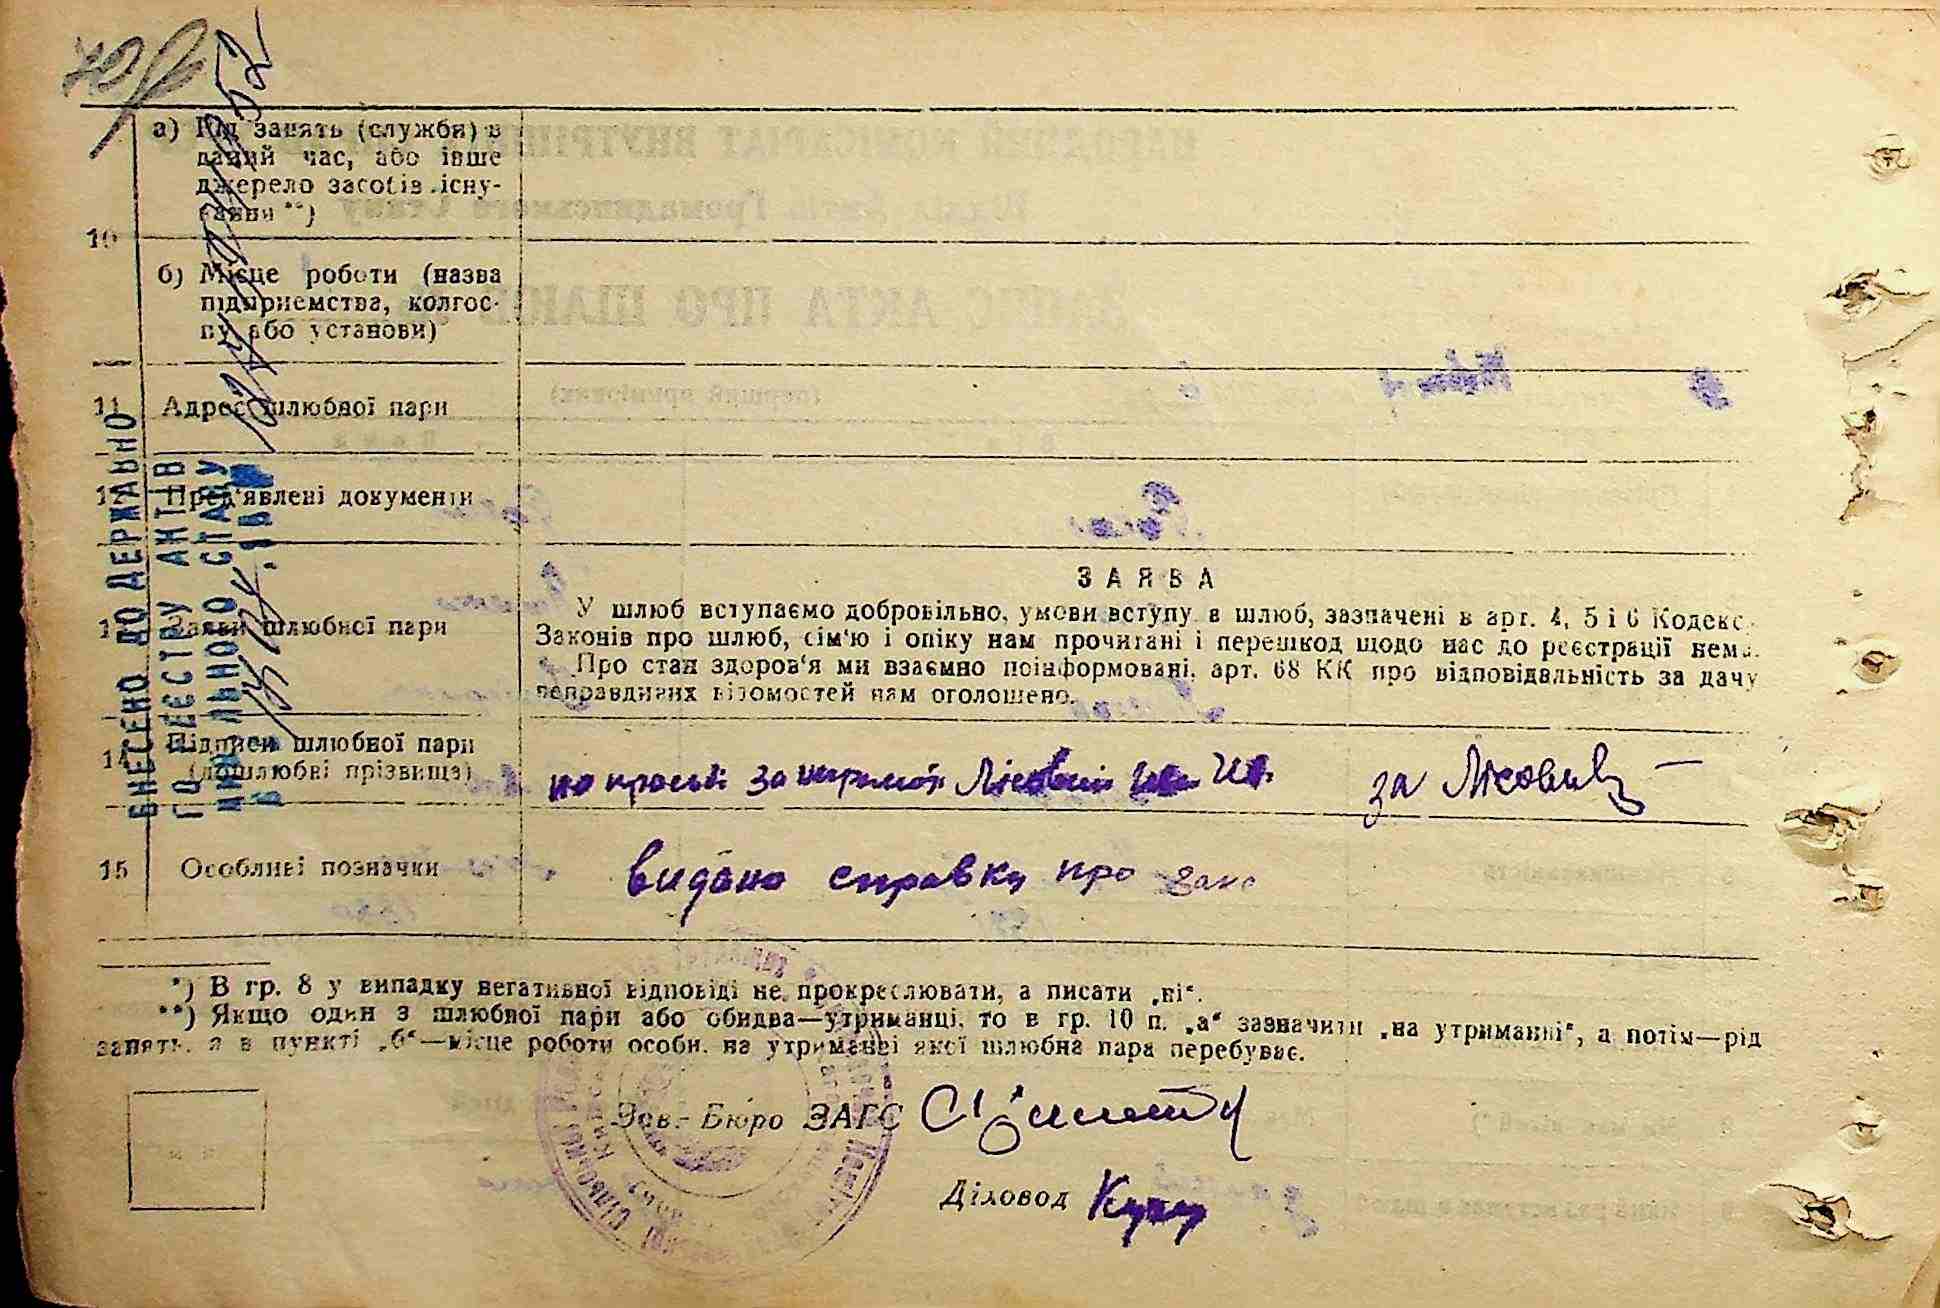 10
а) Рід занять (служби) в
даний час, або інше
джерело засобів існу-
вання **)
б) Місце роботи (назва
підприємства, колгос-
пу або установи)
11 Адрес шлюбної пари
12 Пред'явлені документи
ЗАЯВА
13 Заяви шлюбної пари
У шлюб вступаємо добровільно, умови вступу в шлюб, зазначені в арт. 4, 5 і 6 Кодекс
Законів про шлюб, сім'ю і опіку нам прочитані і перешкод щодо нас до реєстрації нема.
Про стан здоров'я ми взаємно поінформовані, арт. 68 КК про відповідальність за дачу
неправдивих відомостей нам оголошено.
14 Підписи шлюбної пари
(дошлюбні прізвища)
по просьбі за Лісовий за Лісовий
15 Особливі позначки
видано справку про
*) В гр. 8 у випадку негативної відповіді не прокреслювати, а писати „ні“.
**) Якщо один з шлюбної пари або обидва—утриманці, то в гр. 10 п. „а“ зазначити „на утриманні“, а потім—рід
занять, а в пункті „б“—місце роботи особи, на утриманні якої шлюбна пара перебуває.
Зав. Бюро ЗАГС
Діловод
ВНЕСЕНО ДО ДЕРЖАВНО
ГО РЕЄСТРУ АКТІВ
ЦИВІЛЬНОГО СТАНУ